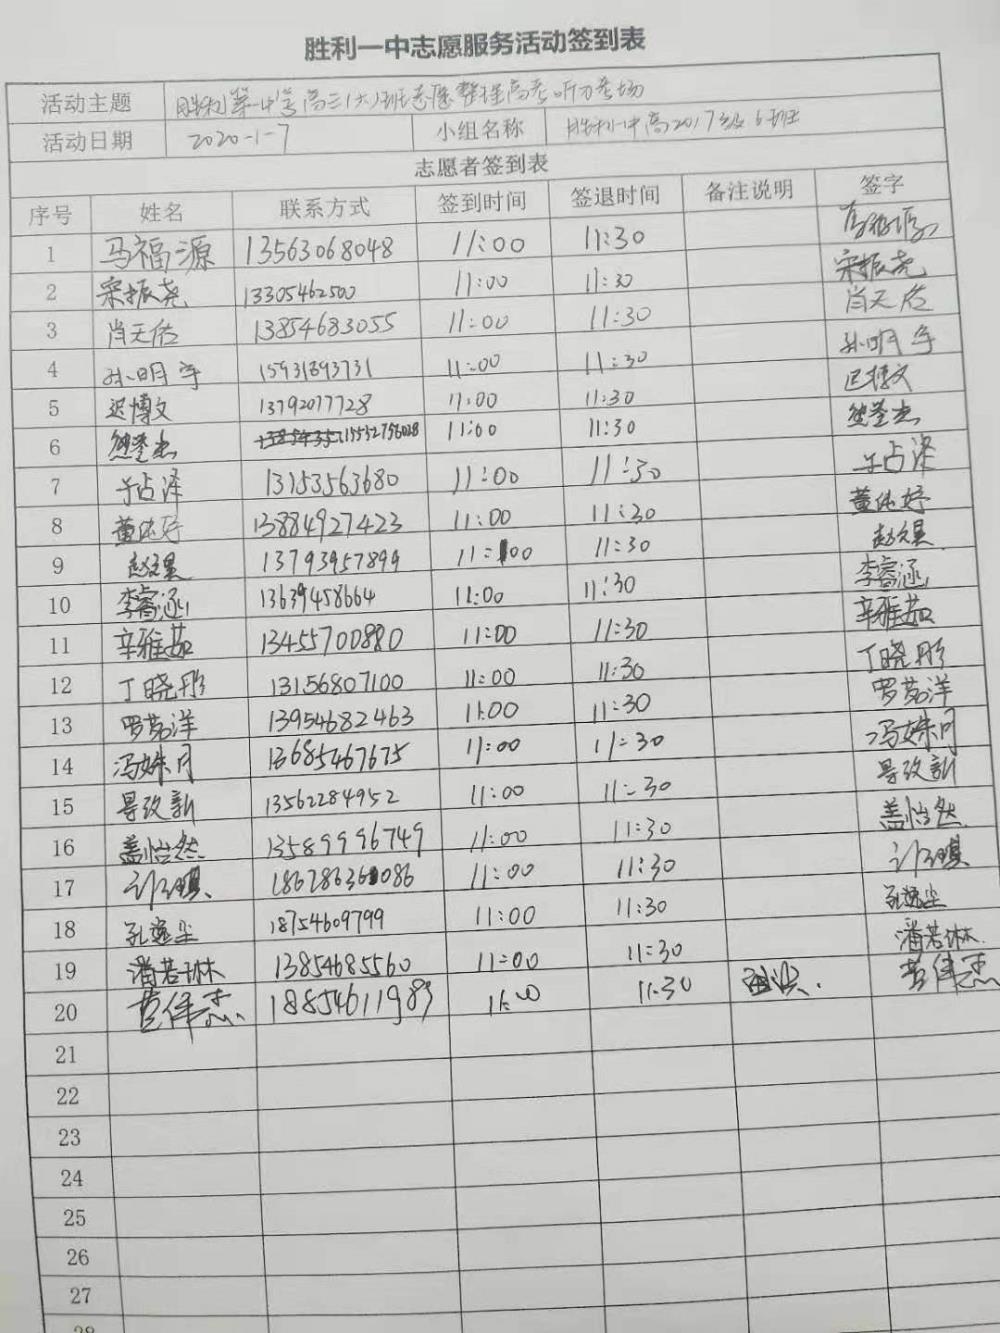 胜利一中志愿服务活动签到表
活动主题 胜利第一中学高三(六)班志愿整理高考听力考场
活动日期 2020-1-7 小组名称 胜利一中高2017级6班
志愿者签到表
序号 姓名 联系方式 签到时间 签退时间 备注说明 签字
1 马福源 13563068048 11:00 11:30 马福源
2 宋振尧 13305462500 11:00 11:30 宋振尧
3 肖天佑 13854683055 11:00 11:30 肖天佑
4 孙明宇 15931893731 11:00 11:30 孙明宇
5 迟博文 13792077728 11:00 11:30 迟博文
6 11:00 11:30
7 于占泽 13153563680 11:00 11:30 于占泽
8 董 13884927423 11:00 11:30 董
9 赵文昊 13793957899 11:00 11:30 赵文昊
10 李睿涵 13639458664 11:00 11:30 李睿涵
11 辛雅茹 13455700880 11:00 11:30 辛雅茹
12 丁晓彤 13156807100 11:00 11:30 丁晓彤
13 罗茗洋 13954682463 11:00 11:30 罗茗洋
14 冯姝月 13685467675 11:00 11:30 冯姝月
15 13562284952 11:00 11:30
16 盖怡然 13589996749 11:00 11:30 盖怡然
17 11:00 11:30
18 孔逸尘 18754609799 11:00 11:30 孔逸尘
19 潘若琳 13854685560 11:00 11:30 潘若琳
20 11:00 11:30
21
22
23
24
25
26
27
28